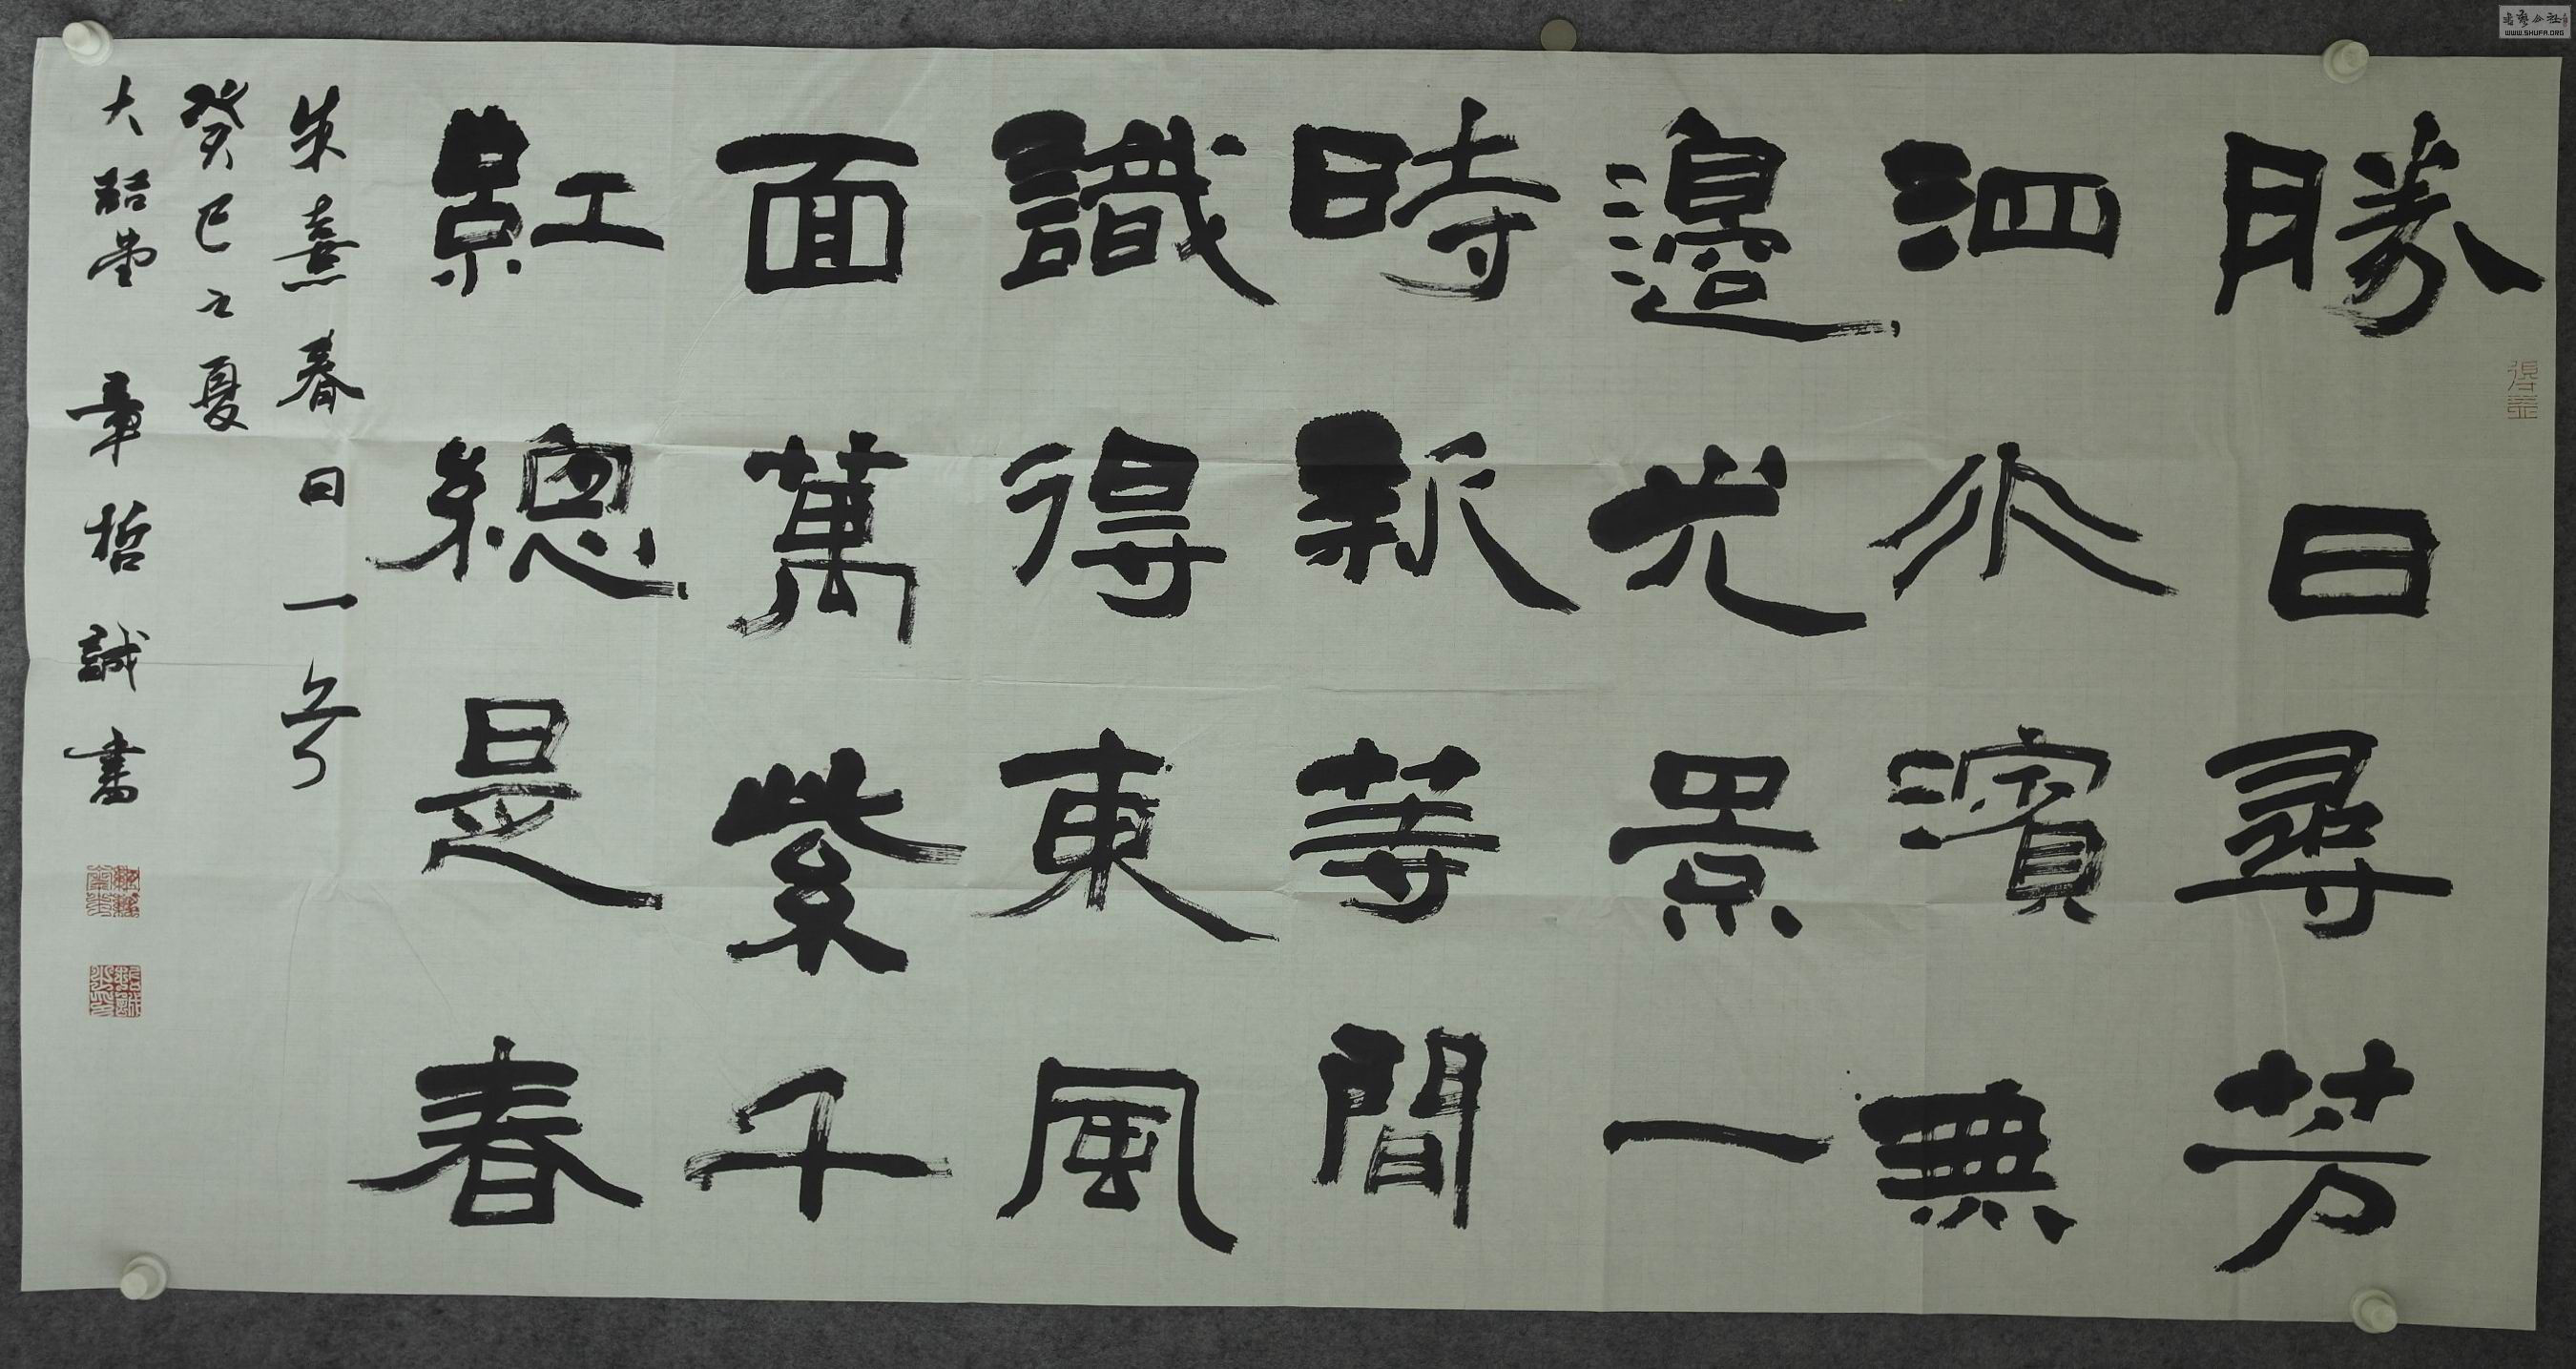 勝日尋芳
泗水濱無
邊光景一
時新等間
識得東風
面萬紫千
紅總是春
朱熹春日一首
癸巳之夏
大韶堂 章哲誠書
WWW.SHUFA.ORG